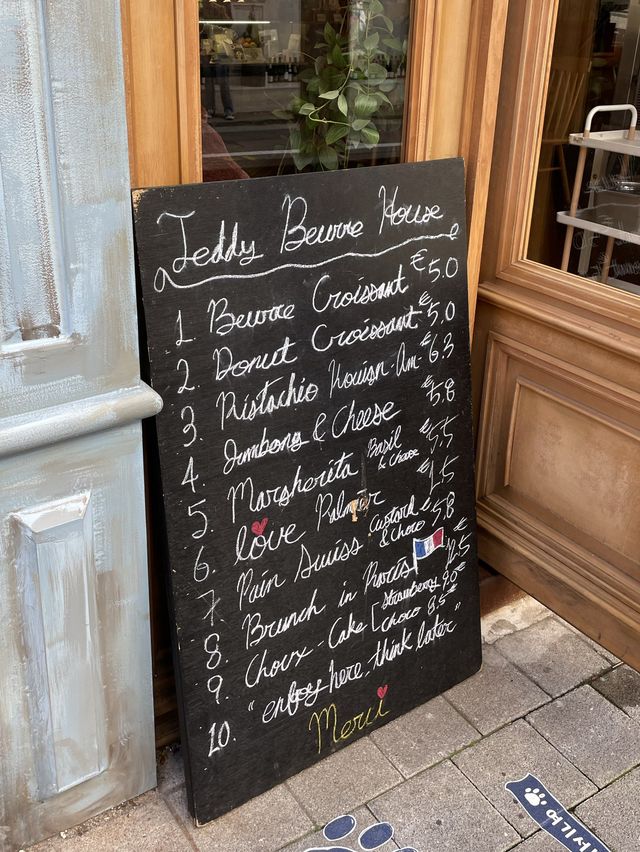 Teddy Beurre House
1 Beurre Croissant €5.0
2. Donut Croissant €5.0
3. Pistachio Kouign-Am- €6.3
4. Jambong & Cheese €5.8
5. Margherita Basil & cheese €5.5
6. love Palmier €1.5
7 Pain Suiss Custard & choco €5.8
8. Brunch in Paris €12.5
9. Choux-Cake [Strawberry 9.0€
choco 8.5€
10. "enjoy here, think later"
Merci